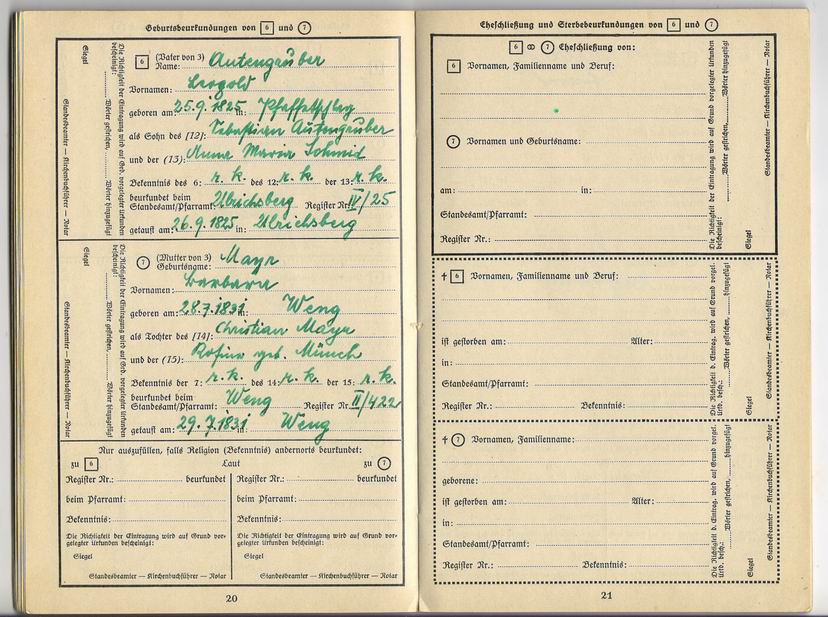 Geburtsbeurkundungen von 6 und 7
6 (Vater von 3)
Name: Autengruber
Vornamen: Leopold
geboren am: 25.9.1825 in:
als Sohn des [12]: Sebastian Autengruber
und der (13): Anna Maria Schmid
Bekenntnis des 6: r. k. des 12: r. k. der 13: r. k.
beurkundet beim
Standesamt/Pfarramt: Ulrichsberg Register Nr. IV/25
getauft am: 26.9.1825 in: Ulrichsberg
Die Richtigkeit der Eintragung wird auf Grd. vorgelegter Urkunden
bescheinigt: Wörter gestrichen, Wörter hinzugefügt
Siegel
Standesbeamter — Kirchenbuchführer — Notar
7 (Mutter von 3)
Geburtsname: Mayr
Vornamen: Barbara
geboren am: 28.7.1831 in: Weng
als Tochter des [14]: Christian Mayr
und der (15): Rosina geb. Münch
Bekenntnis der 7: r. k. des 14: r. k. der 15: r. k.
beurkundet beim
Standesamt/Pfarramt: Weng Register Nr. II/422
getauft am: 29.7.1831 in: Weng
Die Richtigkeit der Eintragung wird auf Grd. vorgelegter Urkunden
bescheinigt: Wörter gestrichen, Wörter hinzugefügt
Siegel
Standesbeamter — Kirchenbuchführer — Notar
Nur auszufüllen, falls Religion (Bekenntnis) andernorts beurkundet:
zu 6 Laut zu 7
Register Nr.: beurkundet
beim Pfarramt:
Bekenntnis:
Die Richtigkeit der Eintragung wird auf Grund vor-
gelegter Urkunden bescheinigt:
Siegel
Standesbeamter — Kirchenbuchführer — Notar
Register Nr.: beurkundet
beim Pfarramt:
Bekenntnis:
Die Richtigkeit der Eintragung wird auf Grund vor-
gelegter Urkunden bescheinigt:
Siegel
Standesbeamter — Kirchenbuchführer — Notar
20
Eheschließung und Sterbebeurkundungen von 6 und 7
6 ∞ 7 Eheschließung von:
6 Vornamen, Familienname und Beruf:
7 Vornamen und Geburtsname:
am: in:
Standesamt/Pfarramt:
Register Nr.:
Die Richtigkeit der Eintragung wird auf Grund vorgelegter Urkunden
bescheinigt: Wörter gestrichen, Wörter hinzugefügt
Siegel
Standesbeamter — Kirchenbuchführer — Notar
† 6 Vornamen, Familienname und Beruf:
ist gestorben am: Alter:
in:
Standesamt/Pfarramt:
Register Nr.: Bekenntnis:
Die Richtigkeit d. Eintrag. wird auf Grund vorgel.
Urk. besch.: Wörter gestrichen, Wörter hinzugefügt
Siegel
Standesbeamter — Kirchenbuchführer — Notar
† 7 Vornamen, Familienname:
geborene:
ist gestorben am: Alter:
in:
Standesamt/Pfarramt:
Register Nr.: Bekenntnis:
Die Richtigkeit d. Eintrag. wird auf Grund vorgel.
Urk. besch.: Wörter gestrichen, Wörter hinzugefügt
Siegel
Standesbeamter — Kirchenbuchführer — Notar
21